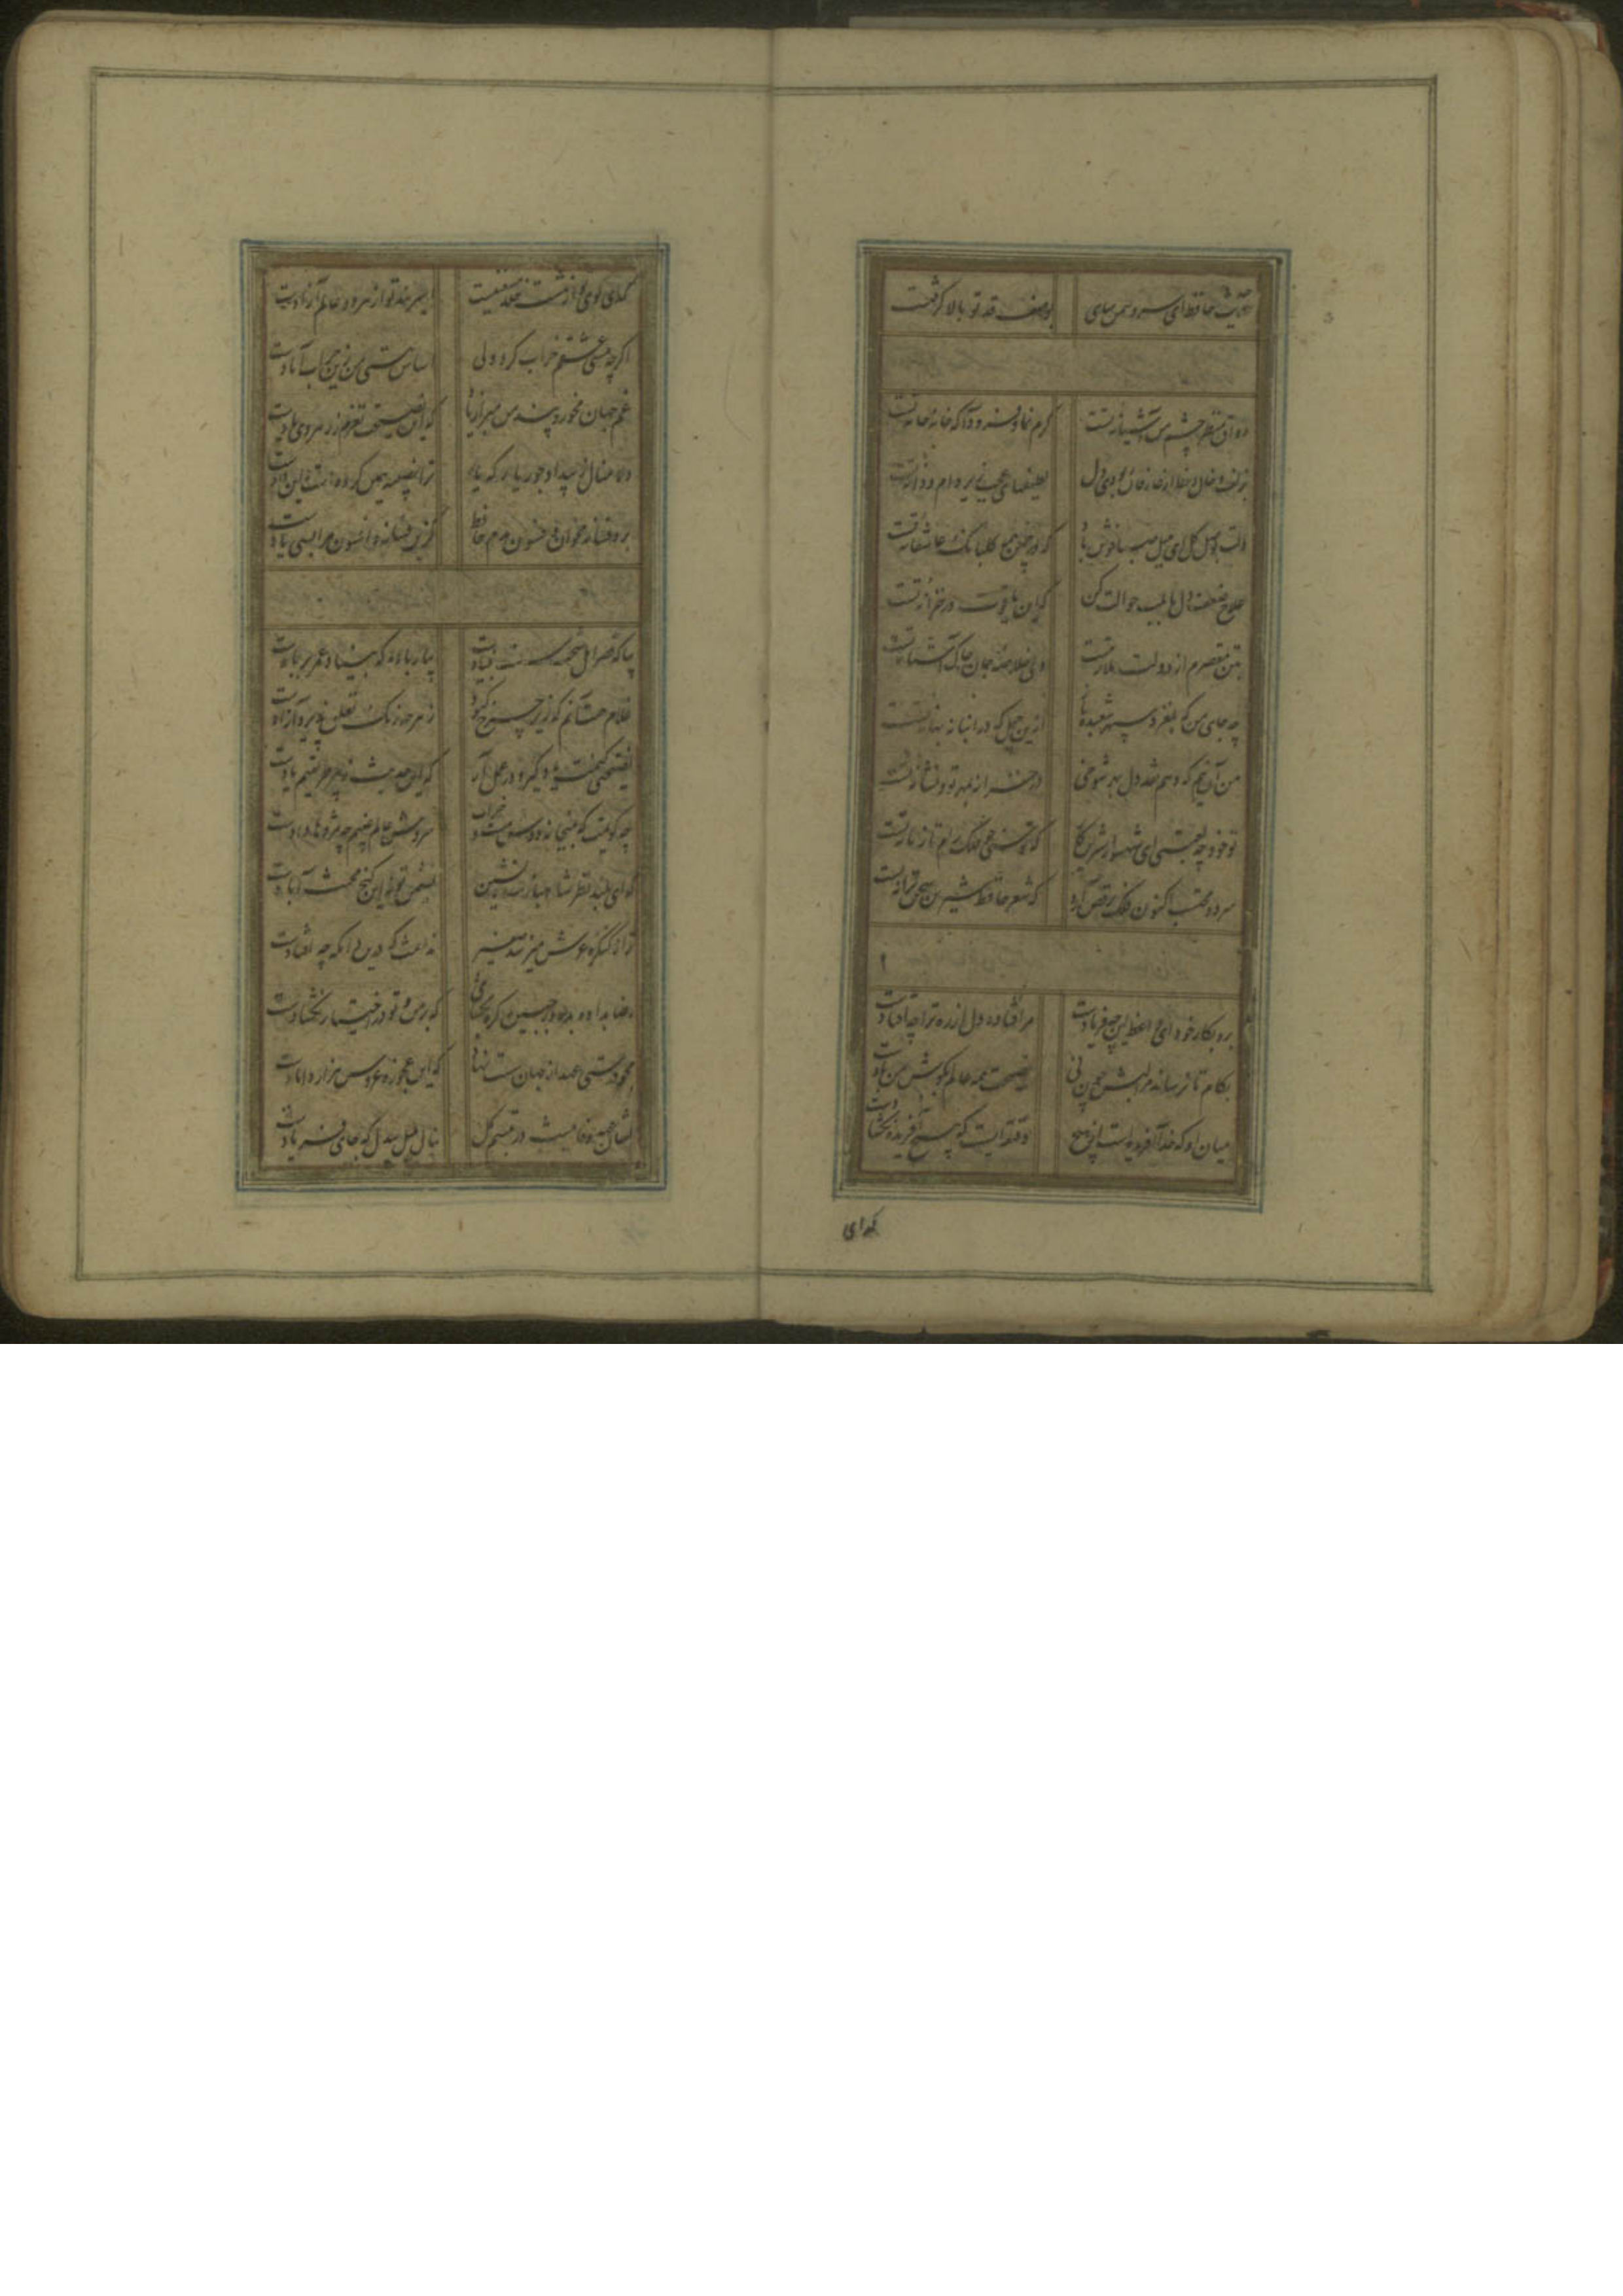 حدیث حافظ ای سرو سمن سای بوصف قد تو بالا گرفت
رواق منظر چشم من آشیانه تست کرم نما و فرود آ که خانه خانه تست
بلطف خال و خط از عارفان ربودی دل لطیفهای عجب زیر دام و دانه تست
دلت بوصل گل ای بلبل صبا خوش باد که در چمن همه گلبانگ عاشقانه تست
علاج ضعف دل ما بلب حوالت کن که این یاقوت در خزانه تست
بتن مقصرم از دولت ملازمت ولی خلاصه جان خاک آستانه تست
چه جای من که بلغزد سپهر شعبده باز ازین حیل که در انبانه بهانه تست
من آن نیم که دهم نقد دل بهر شوخی در خزانه بمهر تو و نشانه تست
تو خود چه لعبتی ای شهسوار شیرین کار که توسنی چو فلک رام تازیانه تست
سرود مجلست اکنون فلک برقص آرد که شعر حافظ شیرین سخن ترانه تست
برو بکار خود ای واعظ این چه فریادست مرا فتاده دل از ره ترا چه افتادست
بکام تا نرساند مرا لبش چون نی نصیحت همه عالم بگوش من بادست
میان او که خدا آفریده است از هیچ دقیقه ایست که هیچ آفریده نگشادست
گدای
گدای کوی تو از هشت خلد مستغنیست اسیر بند تو از هر دو عالم آزادست
اگرچه مستی عشقم خراب کرد ولی اساس هستی من زین خراب آبادست
غم جهان مخور و پند من مبر از یاد که این نصیحت نغزم ز ره روی یادست
دلا منال ز بیداد و جور یار که یار ترا نصیب همین کرده است و این دادست
برو فسانه مخوان و فسون مدم حافظ کزین فسانه و افسون مرا بسی یادست
بیا که قصر امل سخت سست بنیادست بیار باده که بنیاد عمر بر بادست
غلام همت آنم که زیر چرخ کبود ز هر چه رنگ تعلق پذیرد آزادست
نصیحتی کنمت یاد گیر و در عمل آر که این حدیث ز پیر طریقتم یادست
چه گویمت که بمیخانه دوش مست و خراب سروش عالم غیبم چه مژدها دادست
که ای بلند نظر شاهباز سدره نشین نشیمن تو نه این کنج محنت آبادست
ترا ز کنگره عرش میزنند صفیر ندانمت که درین دامگه چه افتادست
رضا بداده بده وز جبین گره بگشای که بر من و تو در اختیار نگشادست
مجو درستی عهد از جهان سست نهاد که این عجوزه عروس هزار دامادست
نشان عهد و وفا نیست در تبسم گل بنال بلبل بیدل که جای فریادست